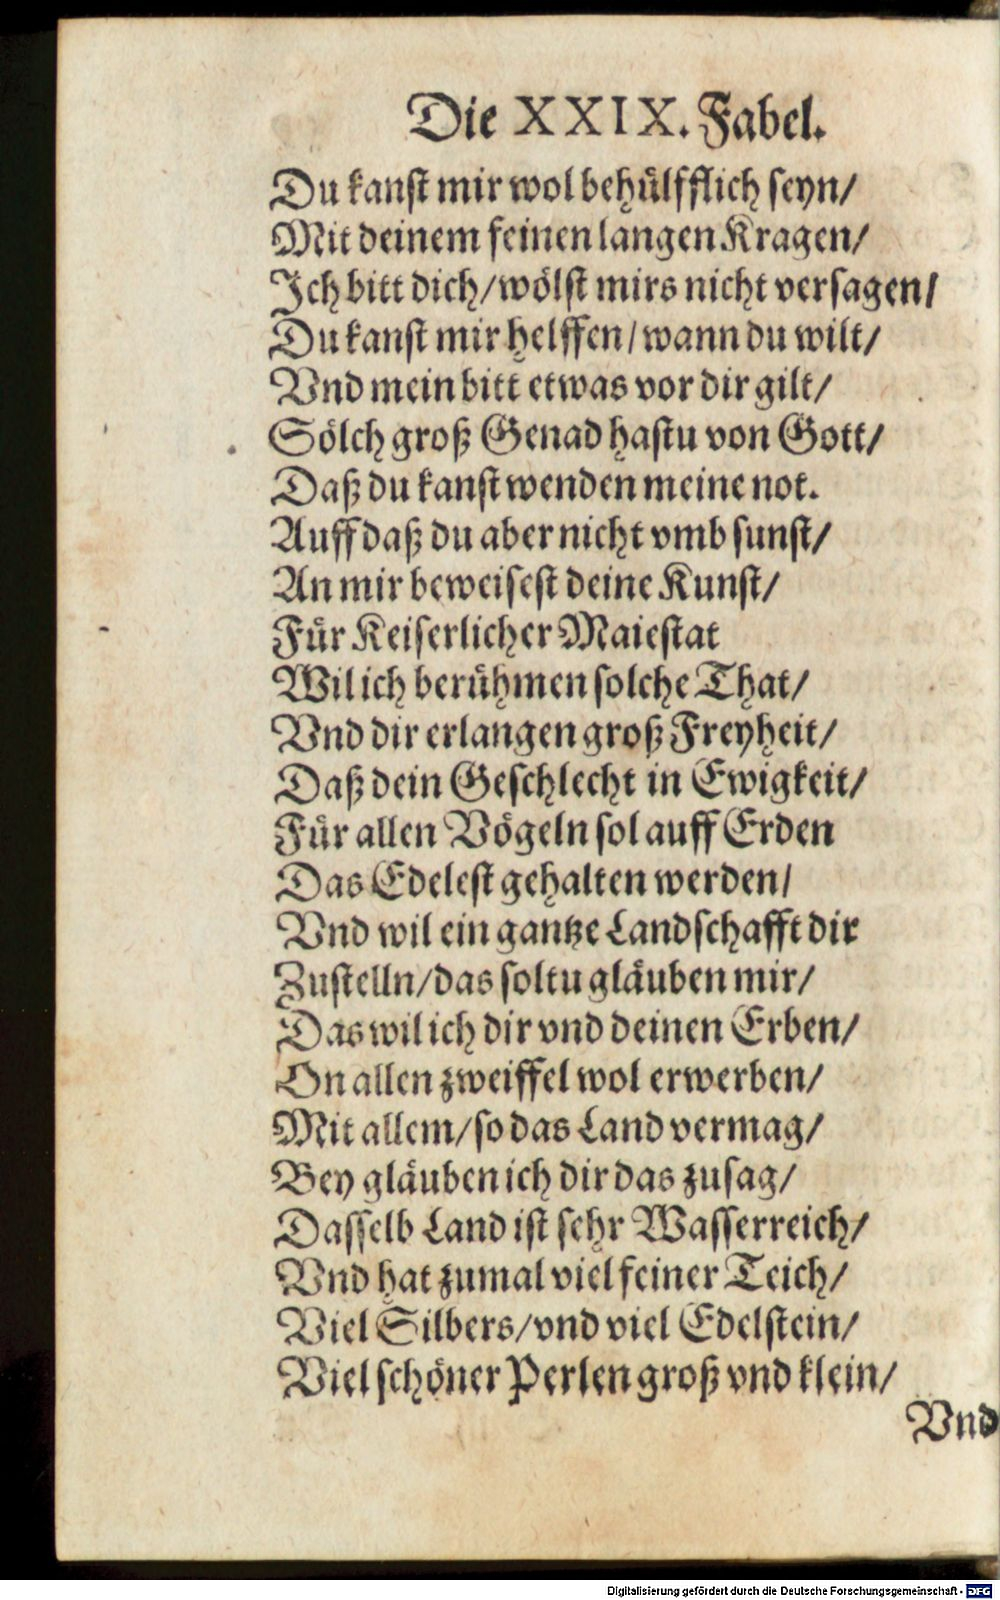 Die XXIX. Fabel.
Du kanst mir wol behülfflich seyn/
Mit deinem feinen langen Kragen/
Ich bitt dich/wölst mirs nicht versagen/
Du kanst mir helffen/wann du wilt/
Vnd mein bitt etwas vor dir gilt/
Sölch groß Genad hastu von Gott/
Daß du kanst wenden meine not.
Auff daß du aber nicht vmb sunst/
An mir beweisest deine Kunst/
Für Keiserlicher Maiestat
Wil ich berühmen solche That/
Vnd dir erlangen groß Freyheit/
Daß dein Geschlecht in Ewigkeit/
Für allen Vögeln sol auff Erden
Das Edelest gehalten werden/
Vnd wil ein gantze Landschafft dir
Zustelln/das soltu gläuben mir/
Das wil ich dir vnd deinen Erben/
On allen zweiffel wol erwerben/
Mit allem/so das Land vermag/
Bey gläuben ich dir das zusag/
Dasselb Land ist sehr Wasserreich/
Vnd hat zumal viel feiner Teich/
Viel Silbers/vnd viel Edelstein/
Viel schöner Perlen groß vnd klein/
Vnd
Digitalisierung gefördert durch die Deutsche Forschungsgemeinschaft - DFG